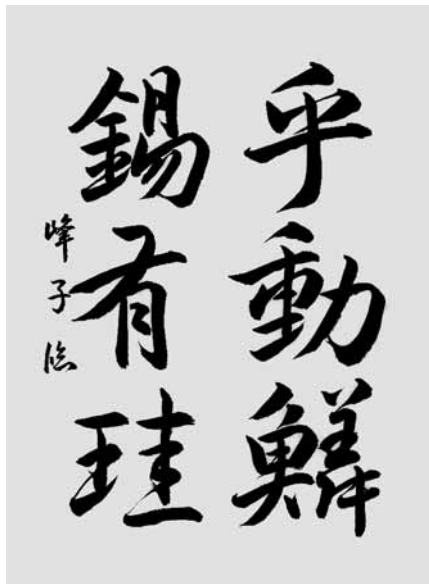 乎動鱗
錫有珪
峰子臨